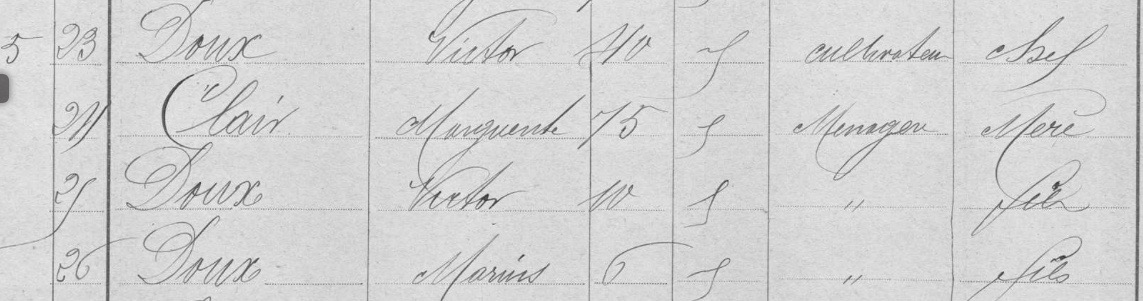 5 23 Doux Victor 40 f cultivateur chef
24 Clair Marguerite 75 f Menagere Mere
25 Doux Victor 10 f " fils
26 Doux Marius 6 f " fils